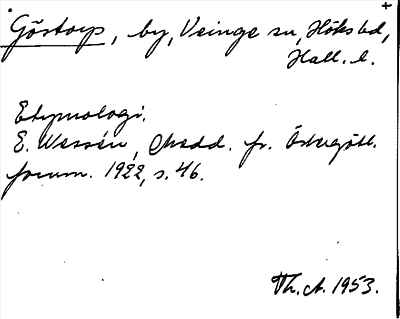 Göstorp, by, Veinge sn, Höks hd,
Hall. l.
Etymologi.
E. Wessén, Medd. fr. Östergötl.
fornm. 1922, s. 46.
Th. A. 1953.